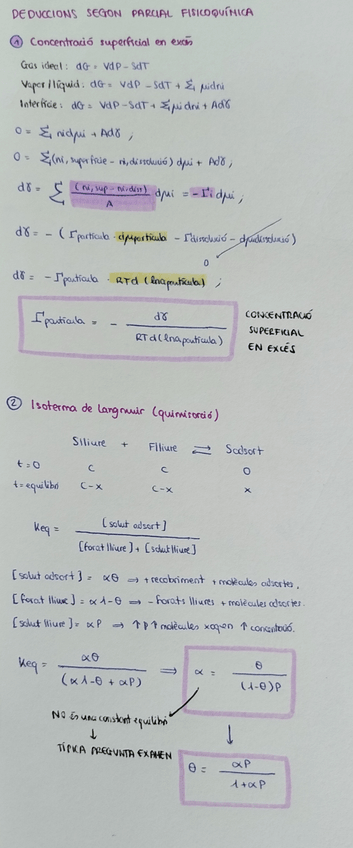 DEDUCCIONS SEGON PARCIAL FISICOQUÍMICA
① Concentració superficial en excés
Gas ideal: dG = VdP - SdT
Vapor/líquid: dG = VdP - SdT + Σ μidni
Interfície: dG = VdP - SdT + Σ μidni + Adγ
0 = Σ nidμi + Adγ ;
0 = Σ(ni,superfície - ni,dissolució) dμi + Adγ ;
dγ = Σ (ni,sup - ni,diss) / A dμi = -Γi dμi ;
dγ = - (Γpartícula · dμpartícula - Γdissolució - dμdissolució)
0
dγ = - Γpartícula · RTd (lnapartícula) ;
Γpartícula = - dγ / RTd (lnapartícula)
CONCENTRACIÓ
SUPERFICIAL
EN EXCÉS
② Isoterma de Langmuir (quimisorció)
Slliure + Flliure ⇌ Sadsort
t=0 C C 0
t=equilibri C-x C-x x
Keq = [solut adsort] / [forat lliure] + [solut lliure]
[solut adsort] = αθ ⟹ + recobriment + molècules adsortes.
[forat lliure] = α 1-θ ⟹ - forats lliures + molècules adsortes.
[solut lliure] = αP ⟹ ↑P ↑ molècules xoquen ↑ concentració.
Keq = αθ / (α 1-θ + αP) ⟹ α = θ / (1-θ)P
NO és una constant equilibri
↓
TÍPICA PREGUNTA EXAMEN
↓
θ = αP / 1+αP